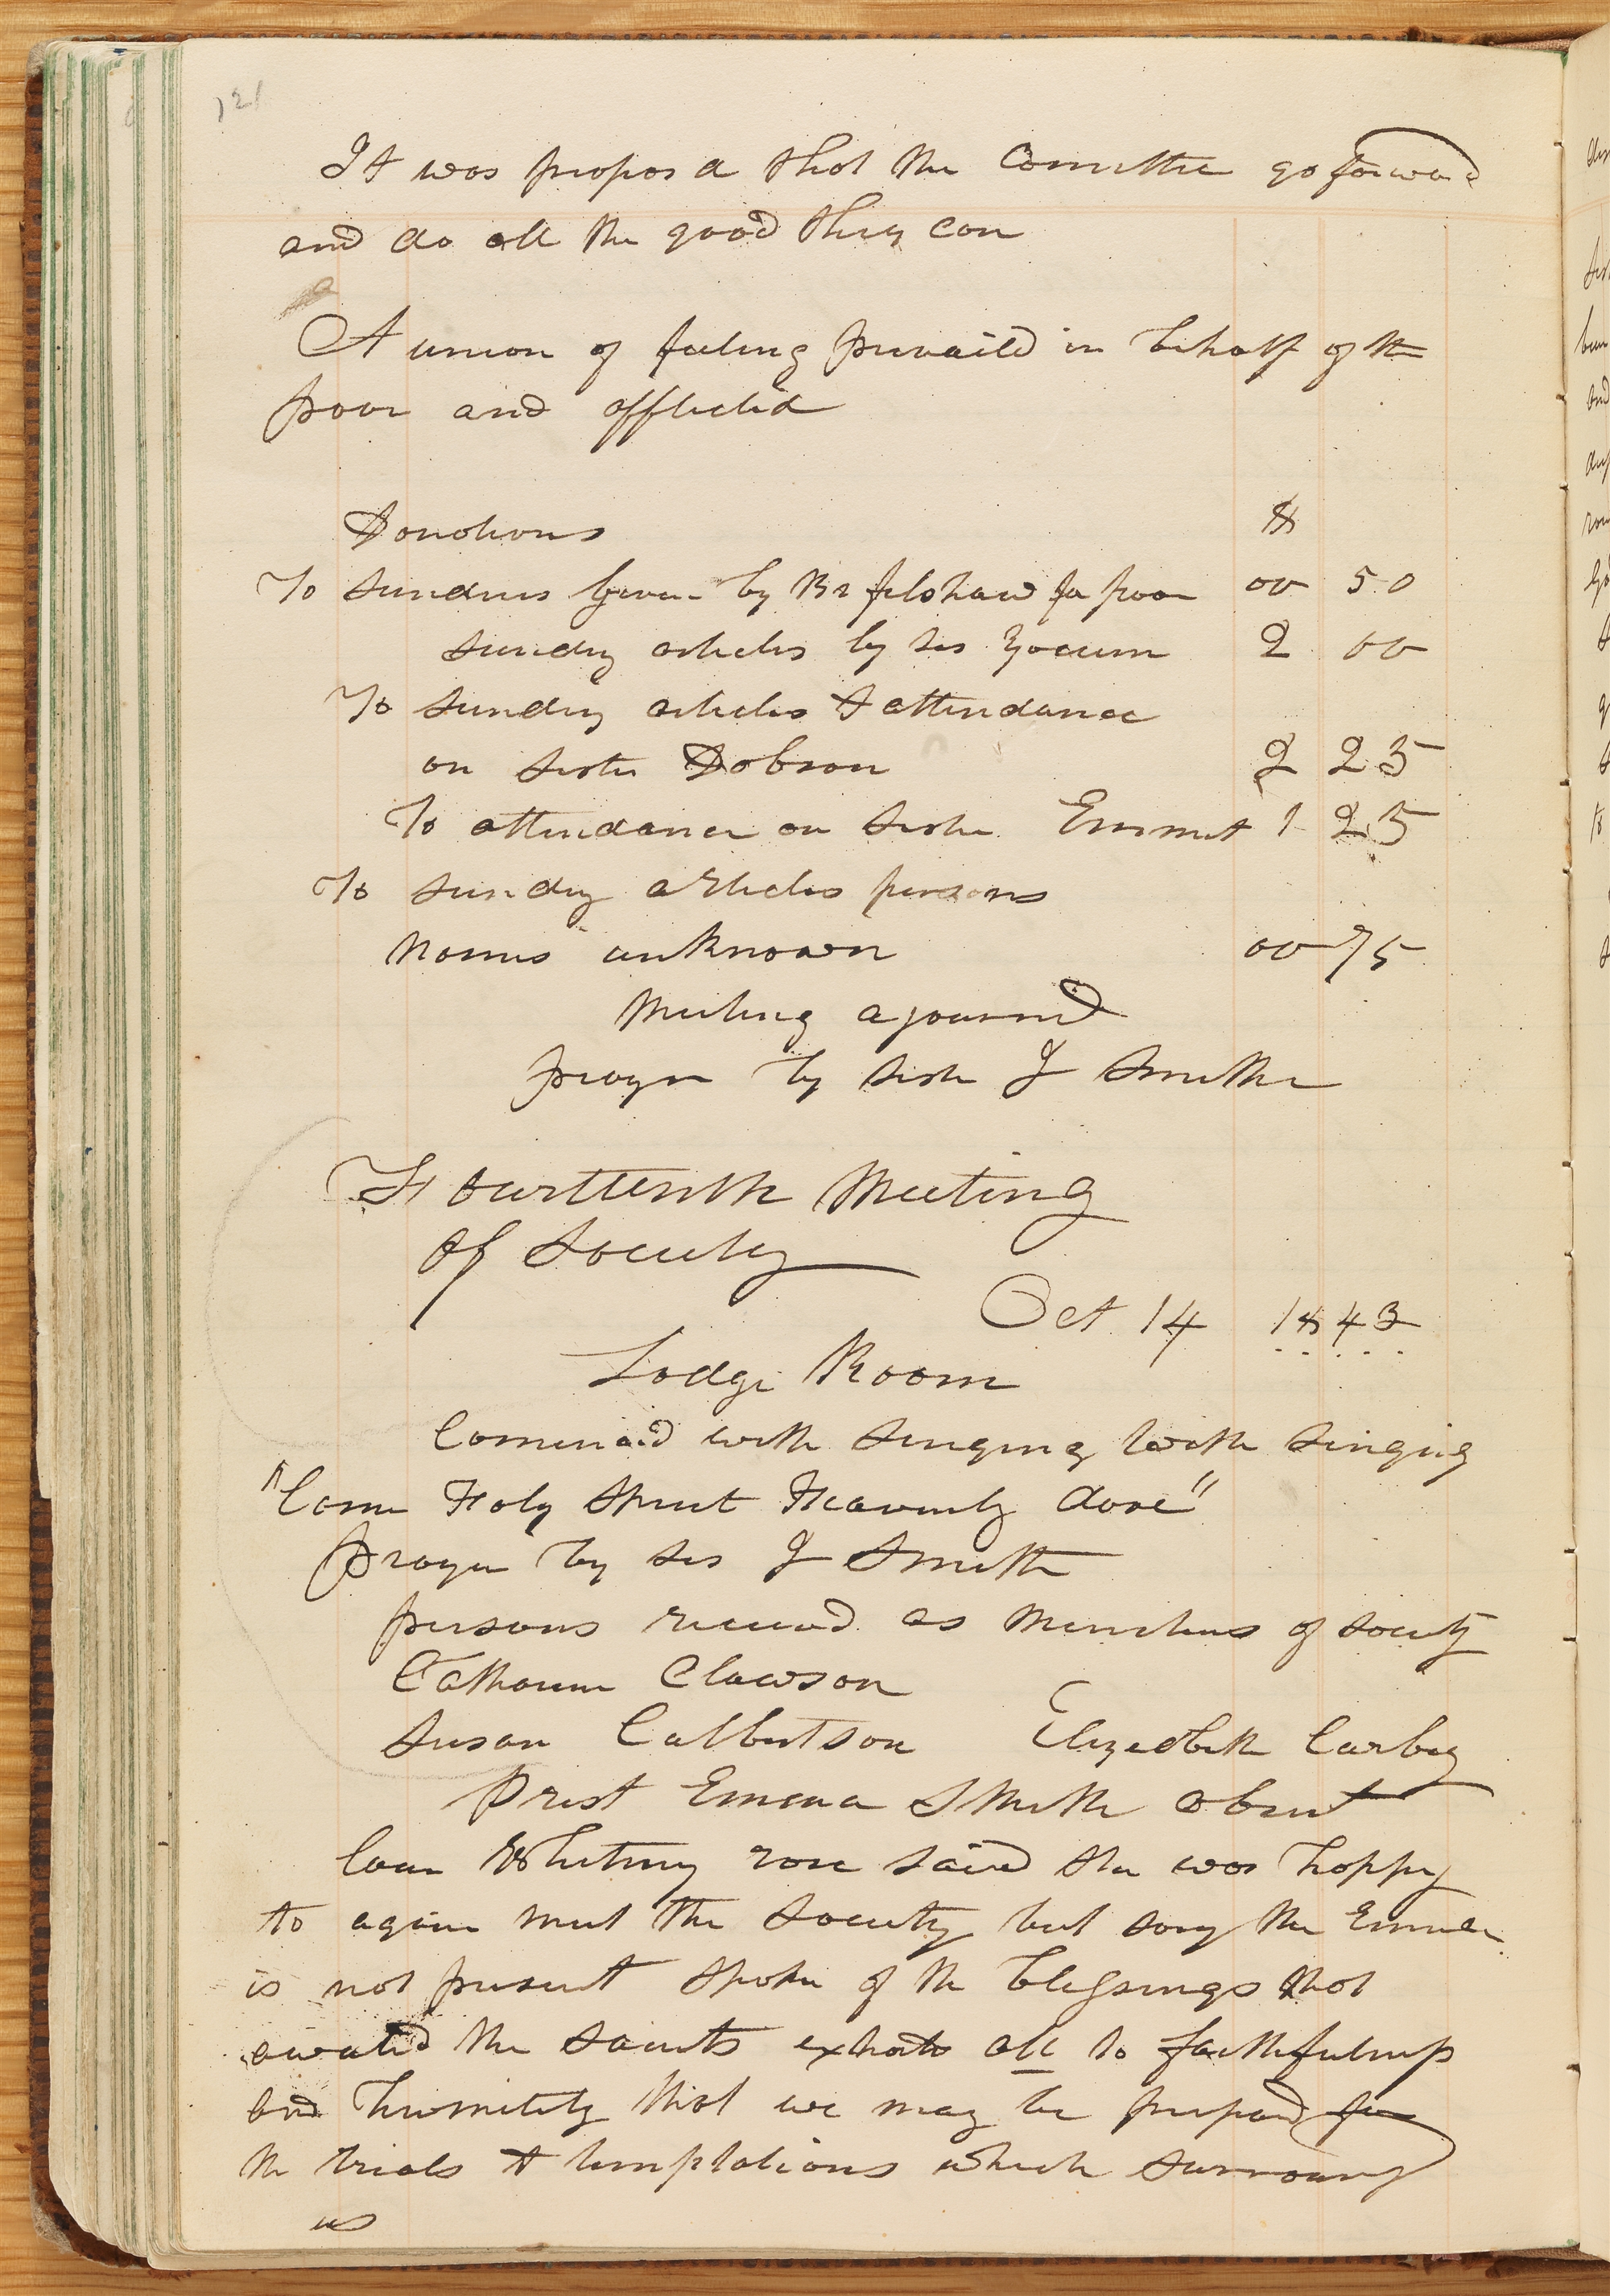 121
It was propos d that the Comittee go forward
and do all the good they can
A union of feeling prevaild in behalf of the
poor and afflicted
Donations $
To sundries given by Br felshaw for poor 00 50
sundry articles by sis Yocum 2 00
To sundry articles & attendance
on sister Dobson 2 25
To attendance on sister Emmet 1 25
To sundry articles persons
names unknown 00 75
Meeting ajournd
prayer by sister J Smith
Fourtteenth Meeting
of Society
Oct 14 1843
Lodge Room
Comencd with singing with singing
"Come Holy Spirit Heavenly dove"
Prayer by sis J Smith
persons received as Members of Society
Catharine Clawson
Susan Culbertson Elizedbeth Carbey
Prest Emma Smith absent
Coun Whitney rose said she was happy
to again meet the Society but sory Mrs Emma
is not present spoke of the blessings that
awaited the saints exhorts all to faithfulness
and humility that we may be prepard for
the trials & temptations which surround
us